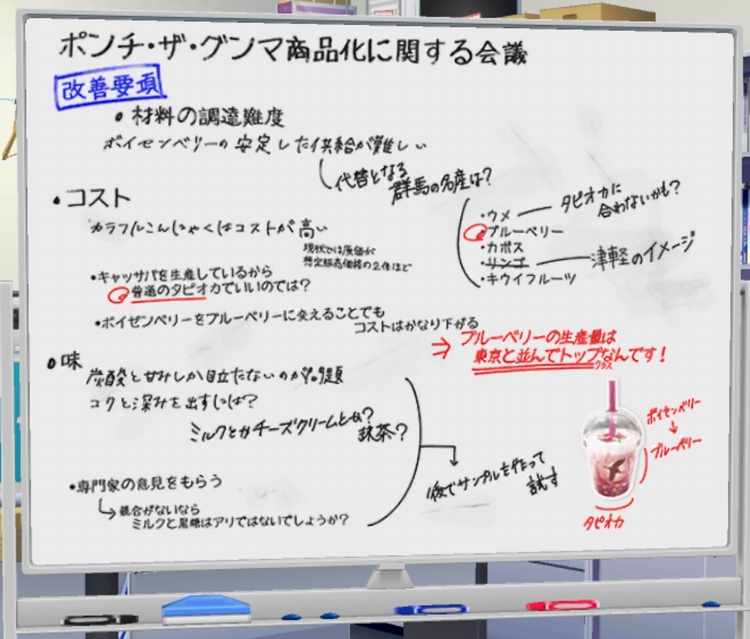 ポンチ・ザ・グンマ商品化に関する会議
改善要項
・材料の調達難度
ボイゼンベリーの安定した供給が難しい
代替となる
群馬の名産は?
・ウメ
タピオカに
合わないかも?
・ブルーベリー
・カボス
・リンゴ
津軽のイメージ
・キウイフルーツ
・コスト
カラフルこんにゃくはコストが高い
現状では原価が
想定販売価格の2倍ほど
・キャッサバを生産しているから
普通のタピオカでいいのでは?
・ボイゼンベリーをブルーベリーに変えることでも
コストはかなり下がる
⇒ ブルーベリーの生産量は
東京と並んでトップなんです!
クラス
・味
炭酸と甘みしか目立たないのが問題
コクと深みを出すには?
ミルクとかチーズクリームとか?
抹茶?
・専門家の意見をもらう
競合がないなら
ミルクと黒糖はアリではないでしょうか?
後でサンプルを作って
試す
ボイゼンベリー
↓
ブルーベリー
タピオカ